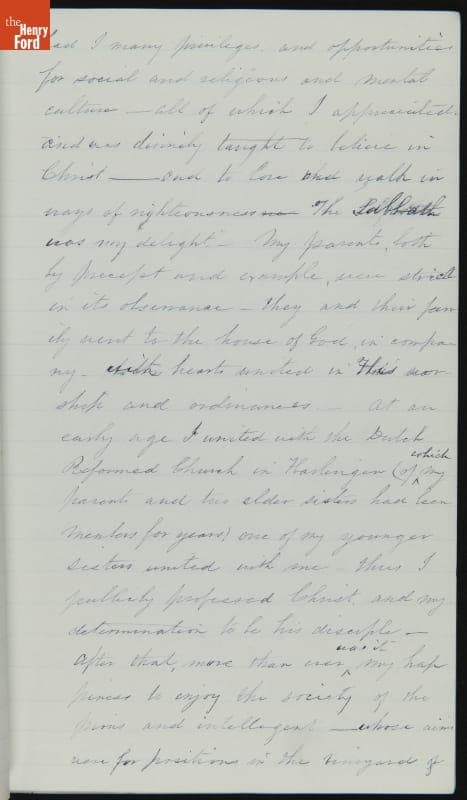 the
Henry
Ford
had I many privileges. and opportunities
for social and religious and mental
culture — all of which I appreciated.
and was divinely taught to believe in
Christ — and to love and walk in
ways of righteousness — The Sabbath
was my delight — My parents, both
by precept and example, were strict
in its observance — they and their fam
ily went to the house of God, in compa
ny — with hearts united in this wor
ship and ordinances — At an
early age I united with the Dutch
Reformed Church in Harlingen (of which my
parents and two elder sisters had been
members for years) one of my younger
sisters united with me — thus I
publicly professed Christ, and my
determination to be his disciple —
After that, more than ever was it my hap
piness to enjoy the society of the
pious and intelligent — whose aims
were for positions in the vineyard of